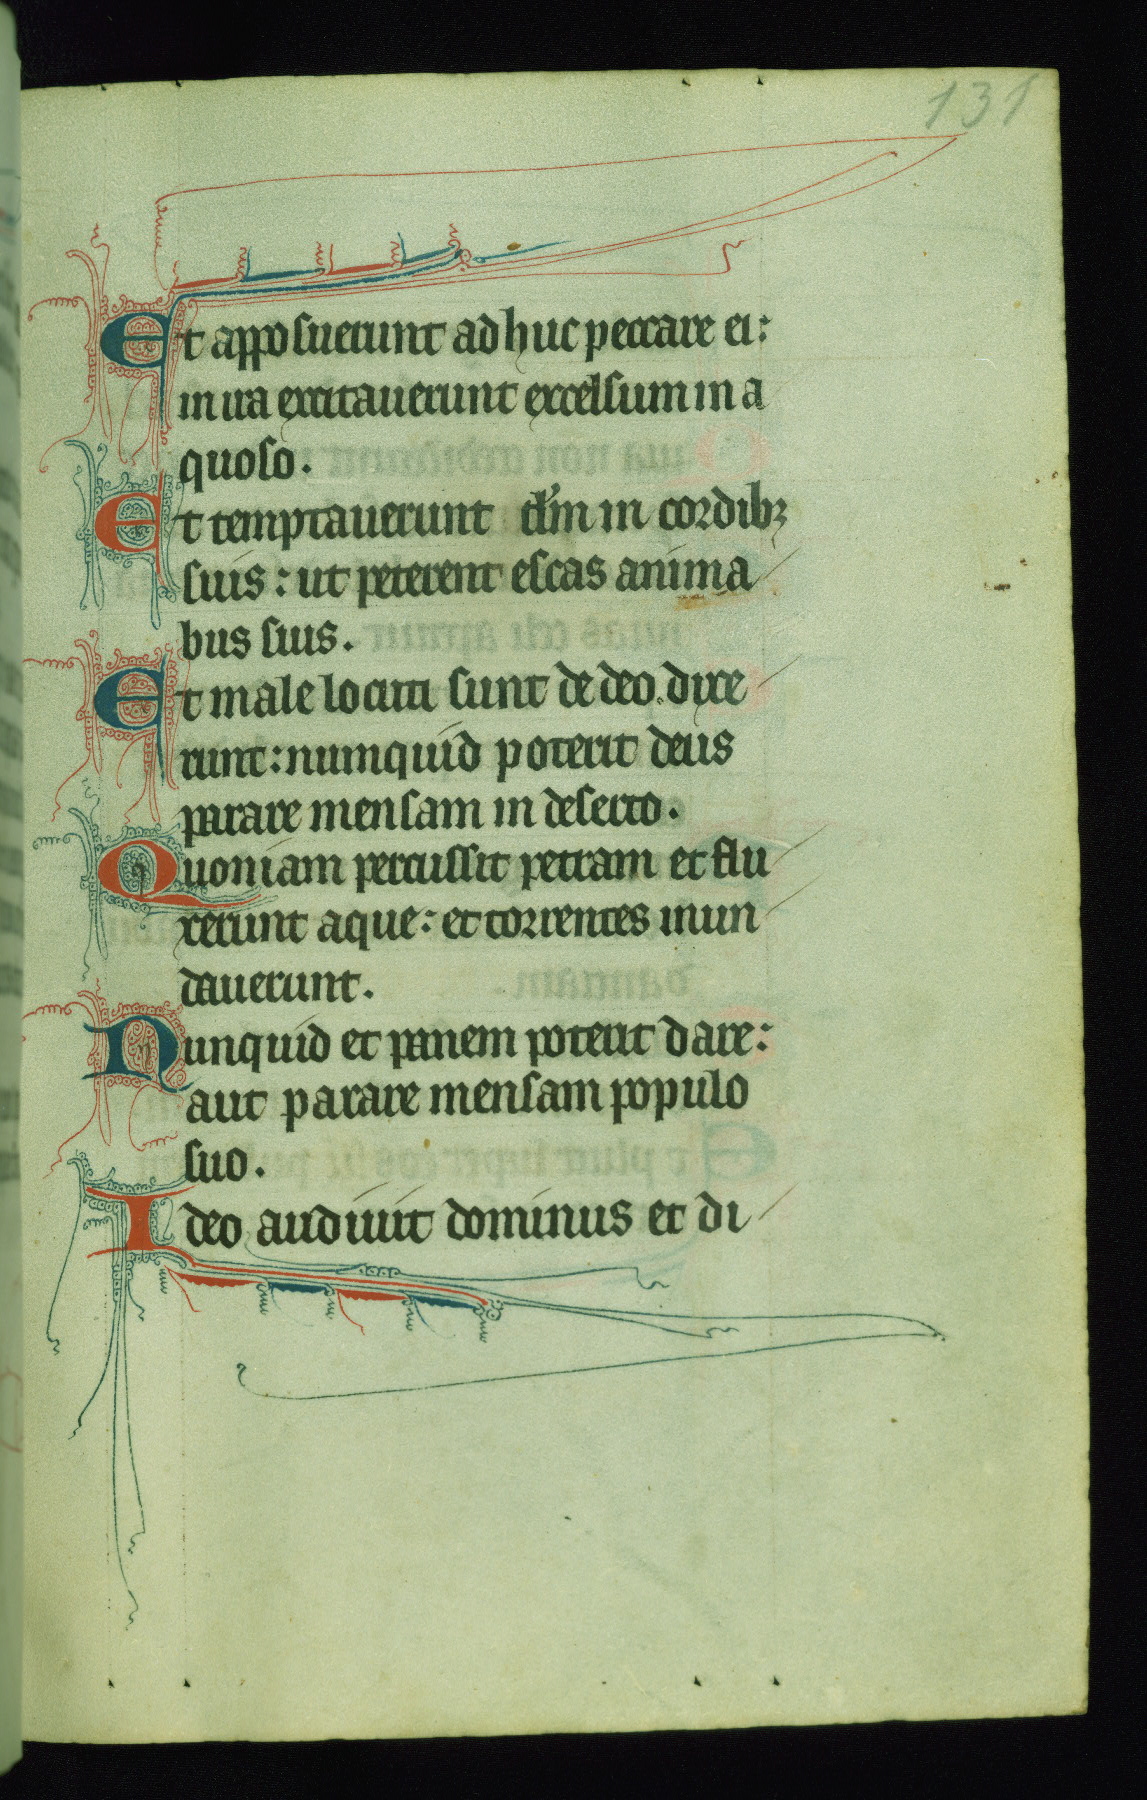 131
Et apposuerunt adhuc peccare ei:
in ira excitauerunt excelsum in a
quoso.
Et temptauerunt dm̄ in cordibꝫ
suis: ut peterent escas anima
bus suis.
Et male locuti sunt de deo. dixe
runt: numquid poterit deus
parare mensam in deserto.
Quoniam percussit petram et flu
xerunt aque: et torrentes inun
dauerunt.
Nunquid et panem poterit dare:
aut parare mensam populo
suo.
Ideo audiuit dominus et di